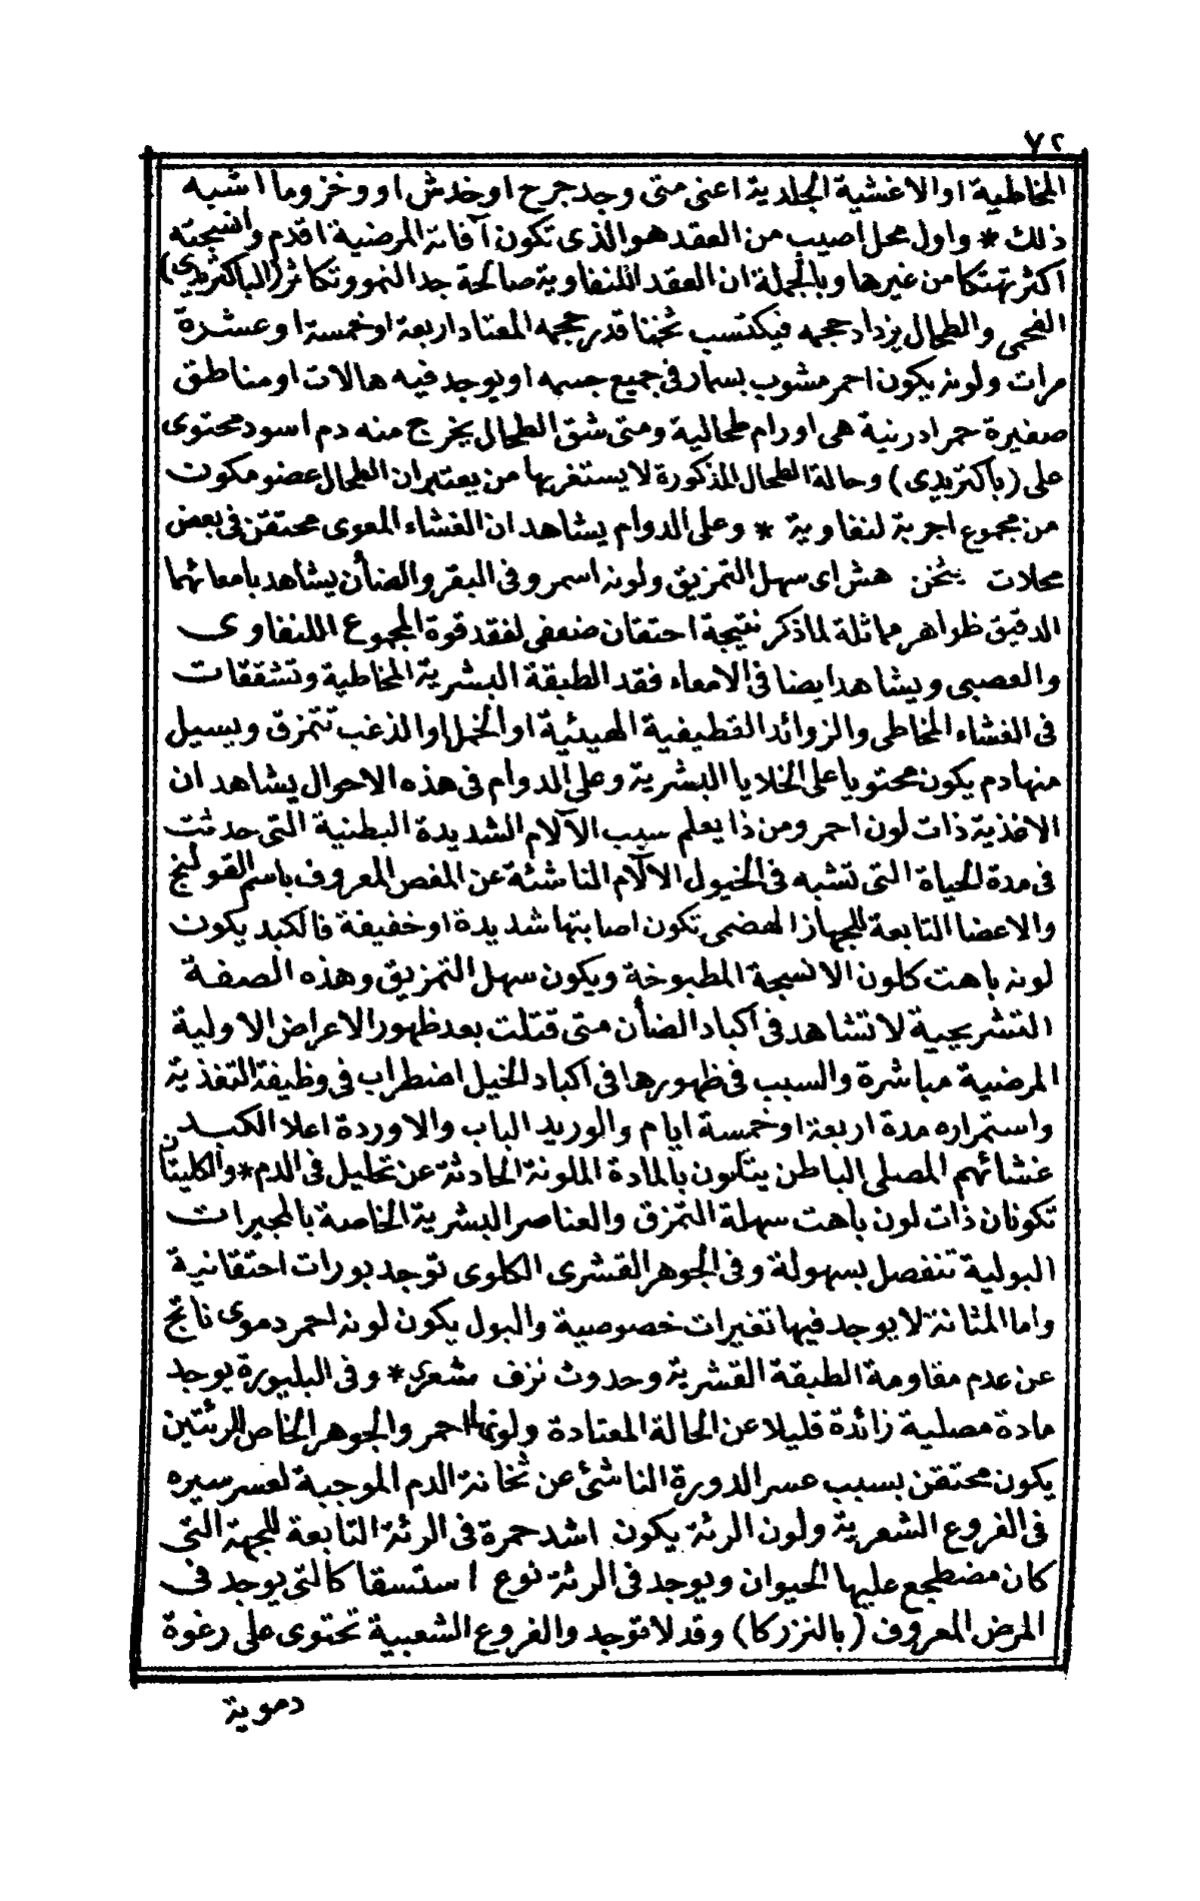 ٧٢
المخاطية او الاغشية الجلدية اعنى متى وجد جرح او خدش او وخز وما اشبه
ذلك * واول محل اصيب من العقد هو الذى تكون آفاته المرضية اقدم وانسجته
اكثر تهتكا من غيرها وبالجملة ان العقد اللنفاوية صالحة جد النمو وتكاثر (الباكتريدى)
الفحمى والطحال يزداد حجمه فيكتسب ثخنا قدر حجمه المعتاد اربعة او خمسة او عشرة
مرات ولونه يكون احمر مشوب بسمار فى جميع جسمه او يوجد فيه هالات او مناطق
صغيرة حمرا درنية هى اورام طحالية ومتى شق الطحال يخرج منه دم اسود محتوى
على (باكتريدى) وحالة الطحال المذكورة لا يستغربها من يعتبر ان الطحال عضو مكون
من مجموع اجربة لنفاوية * وعلى الدوام يشاهد ان الغشاء المعوى محتقن فى بعض
محلات بثخن هش اى سهل التمزيق ولونه اسمر وفى البقر والضأن يشاهد بامعائهما
الدقيق ظواهر مماثلة لما ذكر نتيجة احتقان ضعفى لفقد قوة المجموع اللنفاوى
والعصبى ويشاهد ايضا فى الامعاء فقد الطبقة البشرية المخاطية وتشققات
فى الغشاء المخاطى والزوائد القطيفية الهيئية او الخمل او الذغب تتمزق ويسيل
منها دم يكون محتويا على الخلايا البشرية وعلى الدوام فى هذه الاحوال يشاهد ان
الاغذية ذات لون احمر ومن ذا يعلم سبب الآلام الشديدة البطنية التى حدثت
فى مدة الحياة التى تشبه فى الخيول الآلام الناشئة عن المغص المعروف باسم القولنج
والاعضا التابعة للجهاز الهضمى تكون اصابتها شديدة او خفيفة فالكبد يكون
لونه باهت كلون الانسجة المطبوخة ويكون سهل التمزيق وهذه الصفة
التشريحية لا تشاهد فى اكباد الضأن متى قتلت بعد ظهور الاعراض الاولية
المرضية مباشرة والسبب فى ظهورها فى اكباد الخيل اضطراب فى وظيفة التغذية
واستمراره مدة اربعة او خمسة ايام والوريد الباب والاوردة اعلا الكبد
غشائهم المصلى الباطن يتكون بالمادة الملونة الحادثة عن تحليل فى الدم * والكليتان
تكونان ذات لون باهت سهلة التمزق والعناصر البشرية الخاصة بالمجيرات
البولية تنفصل بسهولة وفى الجوهر القشرى الكلوى توجد بورات احتقانية
واما المثانة لا يوجد فيها تغيرات خصوصية والبول يكون لونه احمر دموى ناتج
عن عدم مقاومة الطبقة القشرية وحدوث نزف شعرى * وفى البليورة يوجد
مادة مصلية زائدة قليلا عن الحالة المعتادة ولونها احمر والجوهر الخاص الرئتين
يكون محتقن بسبب عسر الدورة الناشئ عن ثخانة الدم الموجبة لعسر سيره
فى الفروع الشعرية ولون الرئة يكون اشد حمرة فى الرئة التابعة للجهة التى
كان مضطجع عليها الحيوان ويوجد فى الرئة نوع استسقا كالتى يوجد فى
المرض المعروف (بالنزركا) وقد لا توجد والفروع الشعبية تحتوى على رغوة
دموية